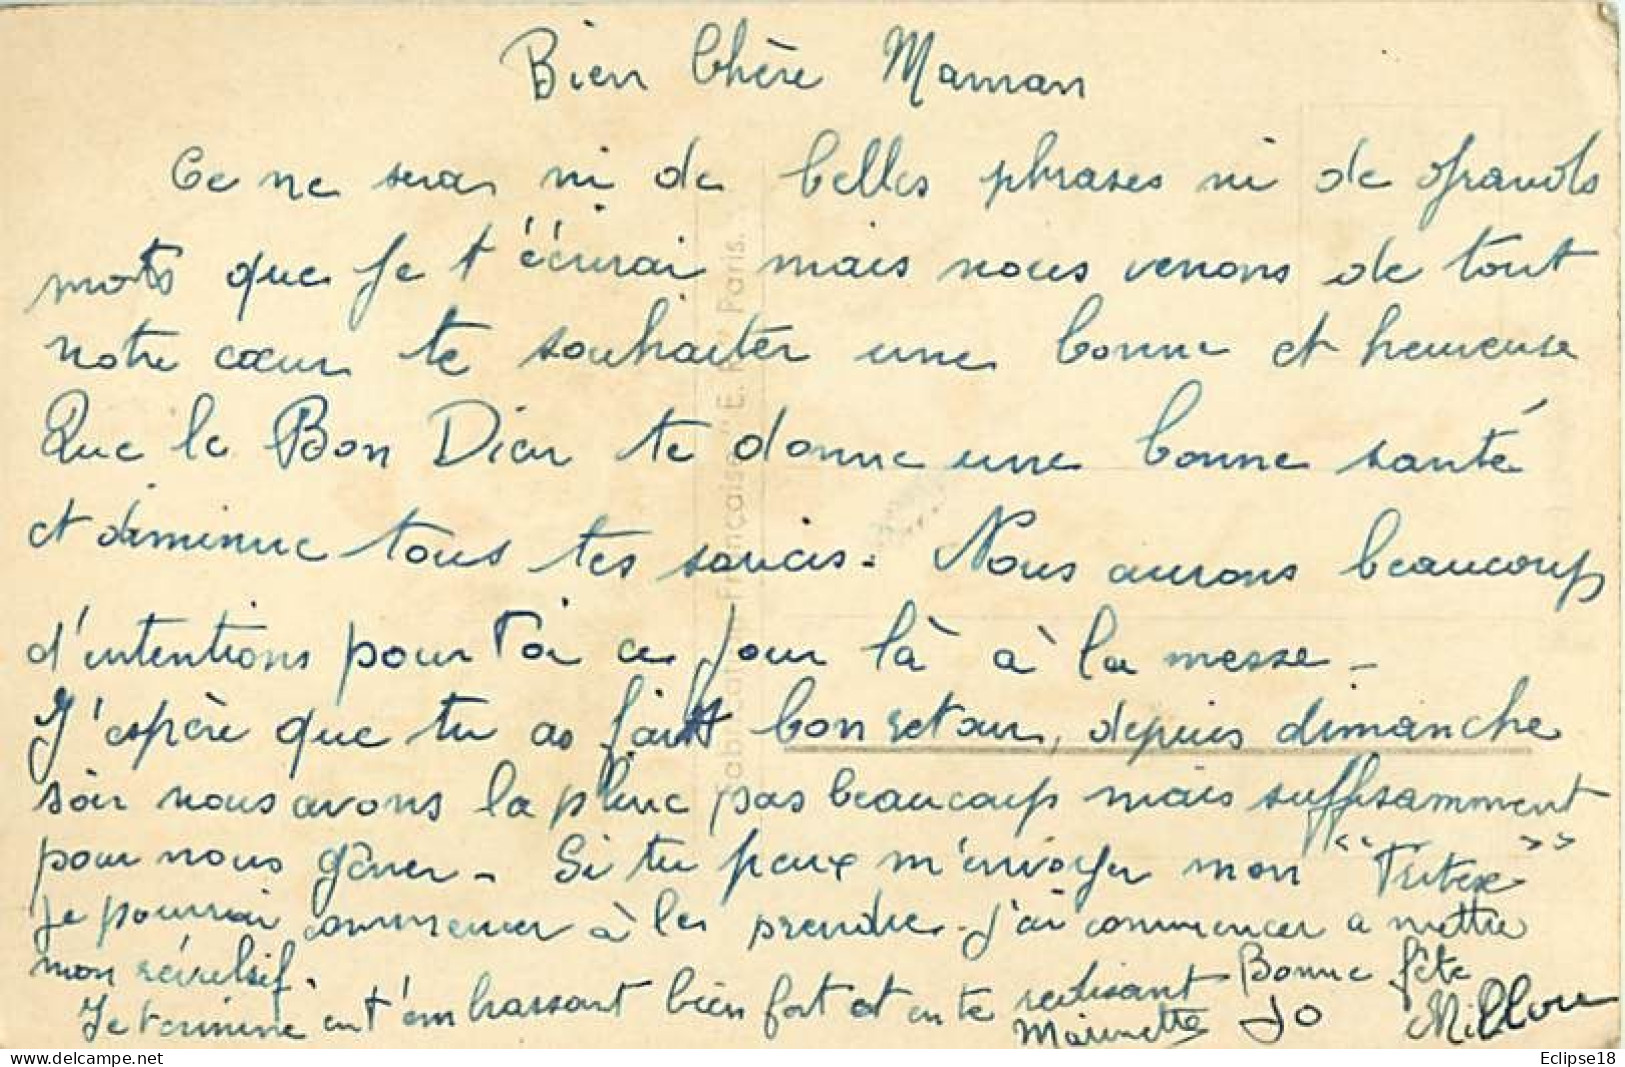 Bien Chère Maman
Ce ne sera ni de belles phrases ni de grands
mots que je t'écrirai mais nous venons de tout
notre cœur te souhaiter une bonne et heureuse
Que le Bon Dieu te donne une bonne santé
et diminue tous tes soucis. Nous aurons beaucoup
d'intentions pour Toi ce jour là à la messe -
J'espère que tu as fait bon retour, depuis dimanche
soir nous avons la pluie pas beaucoup mais suffisamment
pour nous gêner - Si tu peux m'envoyer mon
je pourrai commencer à les prendre - j'ai commencer a mettre
mon révulsif.
Je termine en t'embrassant bien fort et en te redisant Bonne fête
Marinette Jo
Fabrication Française - E. R. Paris.
Eclipse18